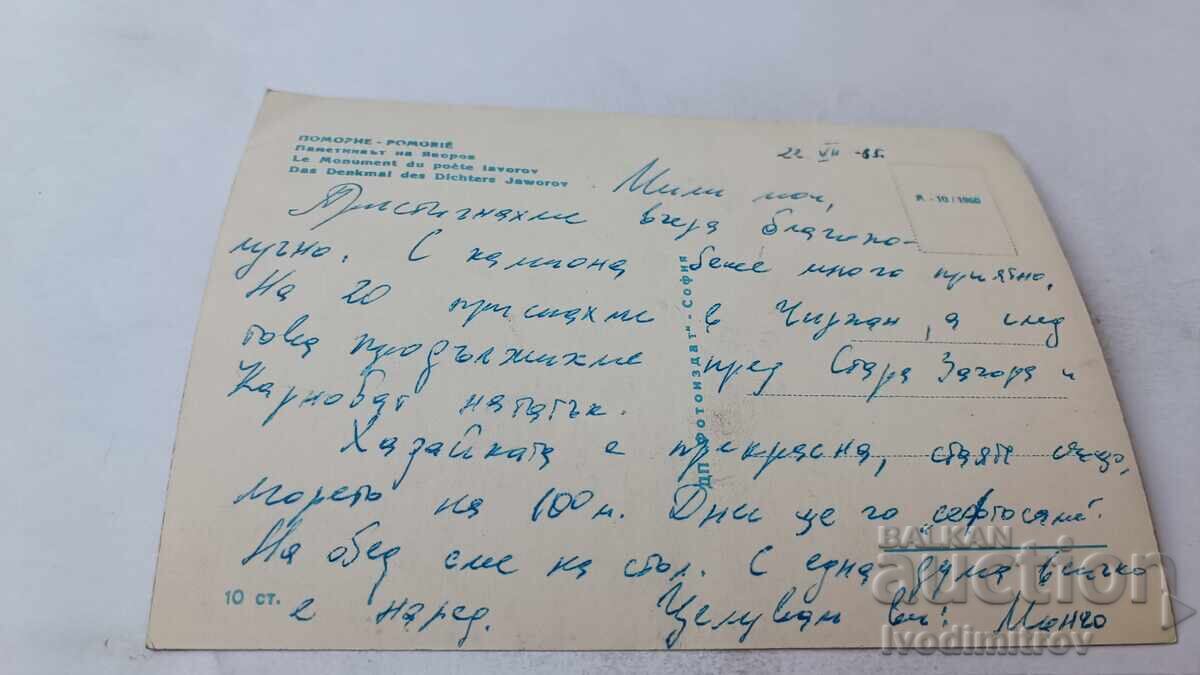 ПОМОРИЕ - POMORIÉ
Паметникът на Яворов
Le Monument du poète Iavorov
Das Denkmal des Dichters Jaworov
22 VII -65.
Я. - 10 / 1960
Мили мои,
Пристигнахме вчера благопо-
лучно. С камиона беше много приятно.
На 20 преспахме в Чирпан, а след
това продължихме пред Стара Загора и
Карнобат нататък.
Хазайката е прекрасна, стаята също,
морето на 100 м. Днес ще го "сефтосаме".
На обед сме на стол. С една дума всичко
е наред. Целувам ви! Мончо
ДП "Фотоиздат" - София
10 ст.
BALKAN
auction
ivodimitrov